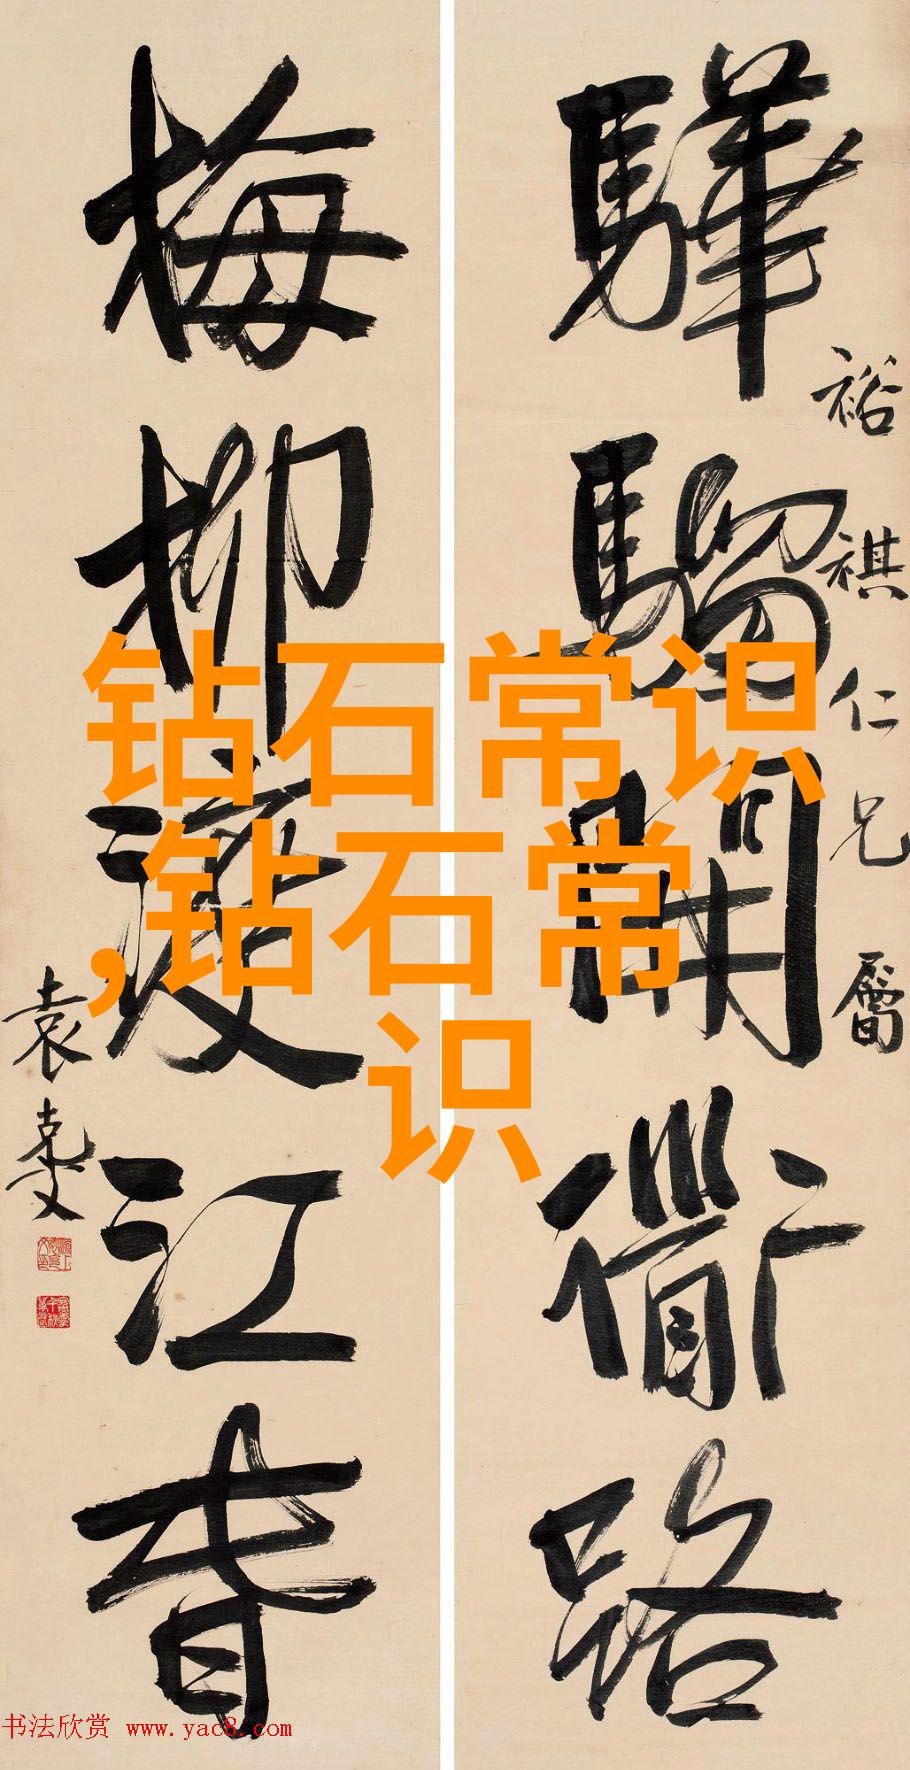 驊騮開衜路
裕祺仁兄屬
梅柳渡江春
袁克文
钻石常识
,钻石常
识
书法欣赏 www.yac8.com